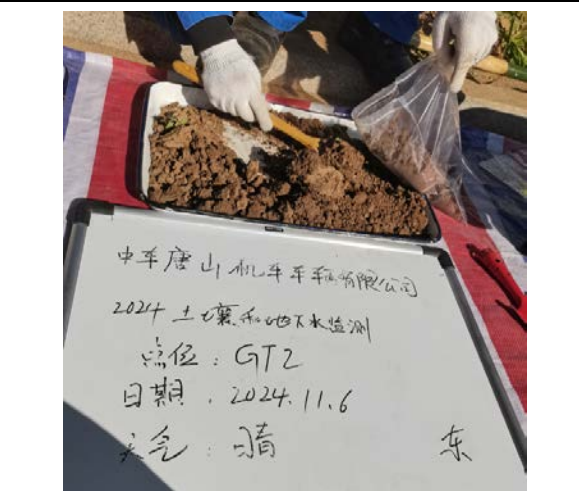 中车唐山机车车辆有限公司
2024土壤和地下水监测
点位：GT2
日期：2024.11.6
天气：晴 东